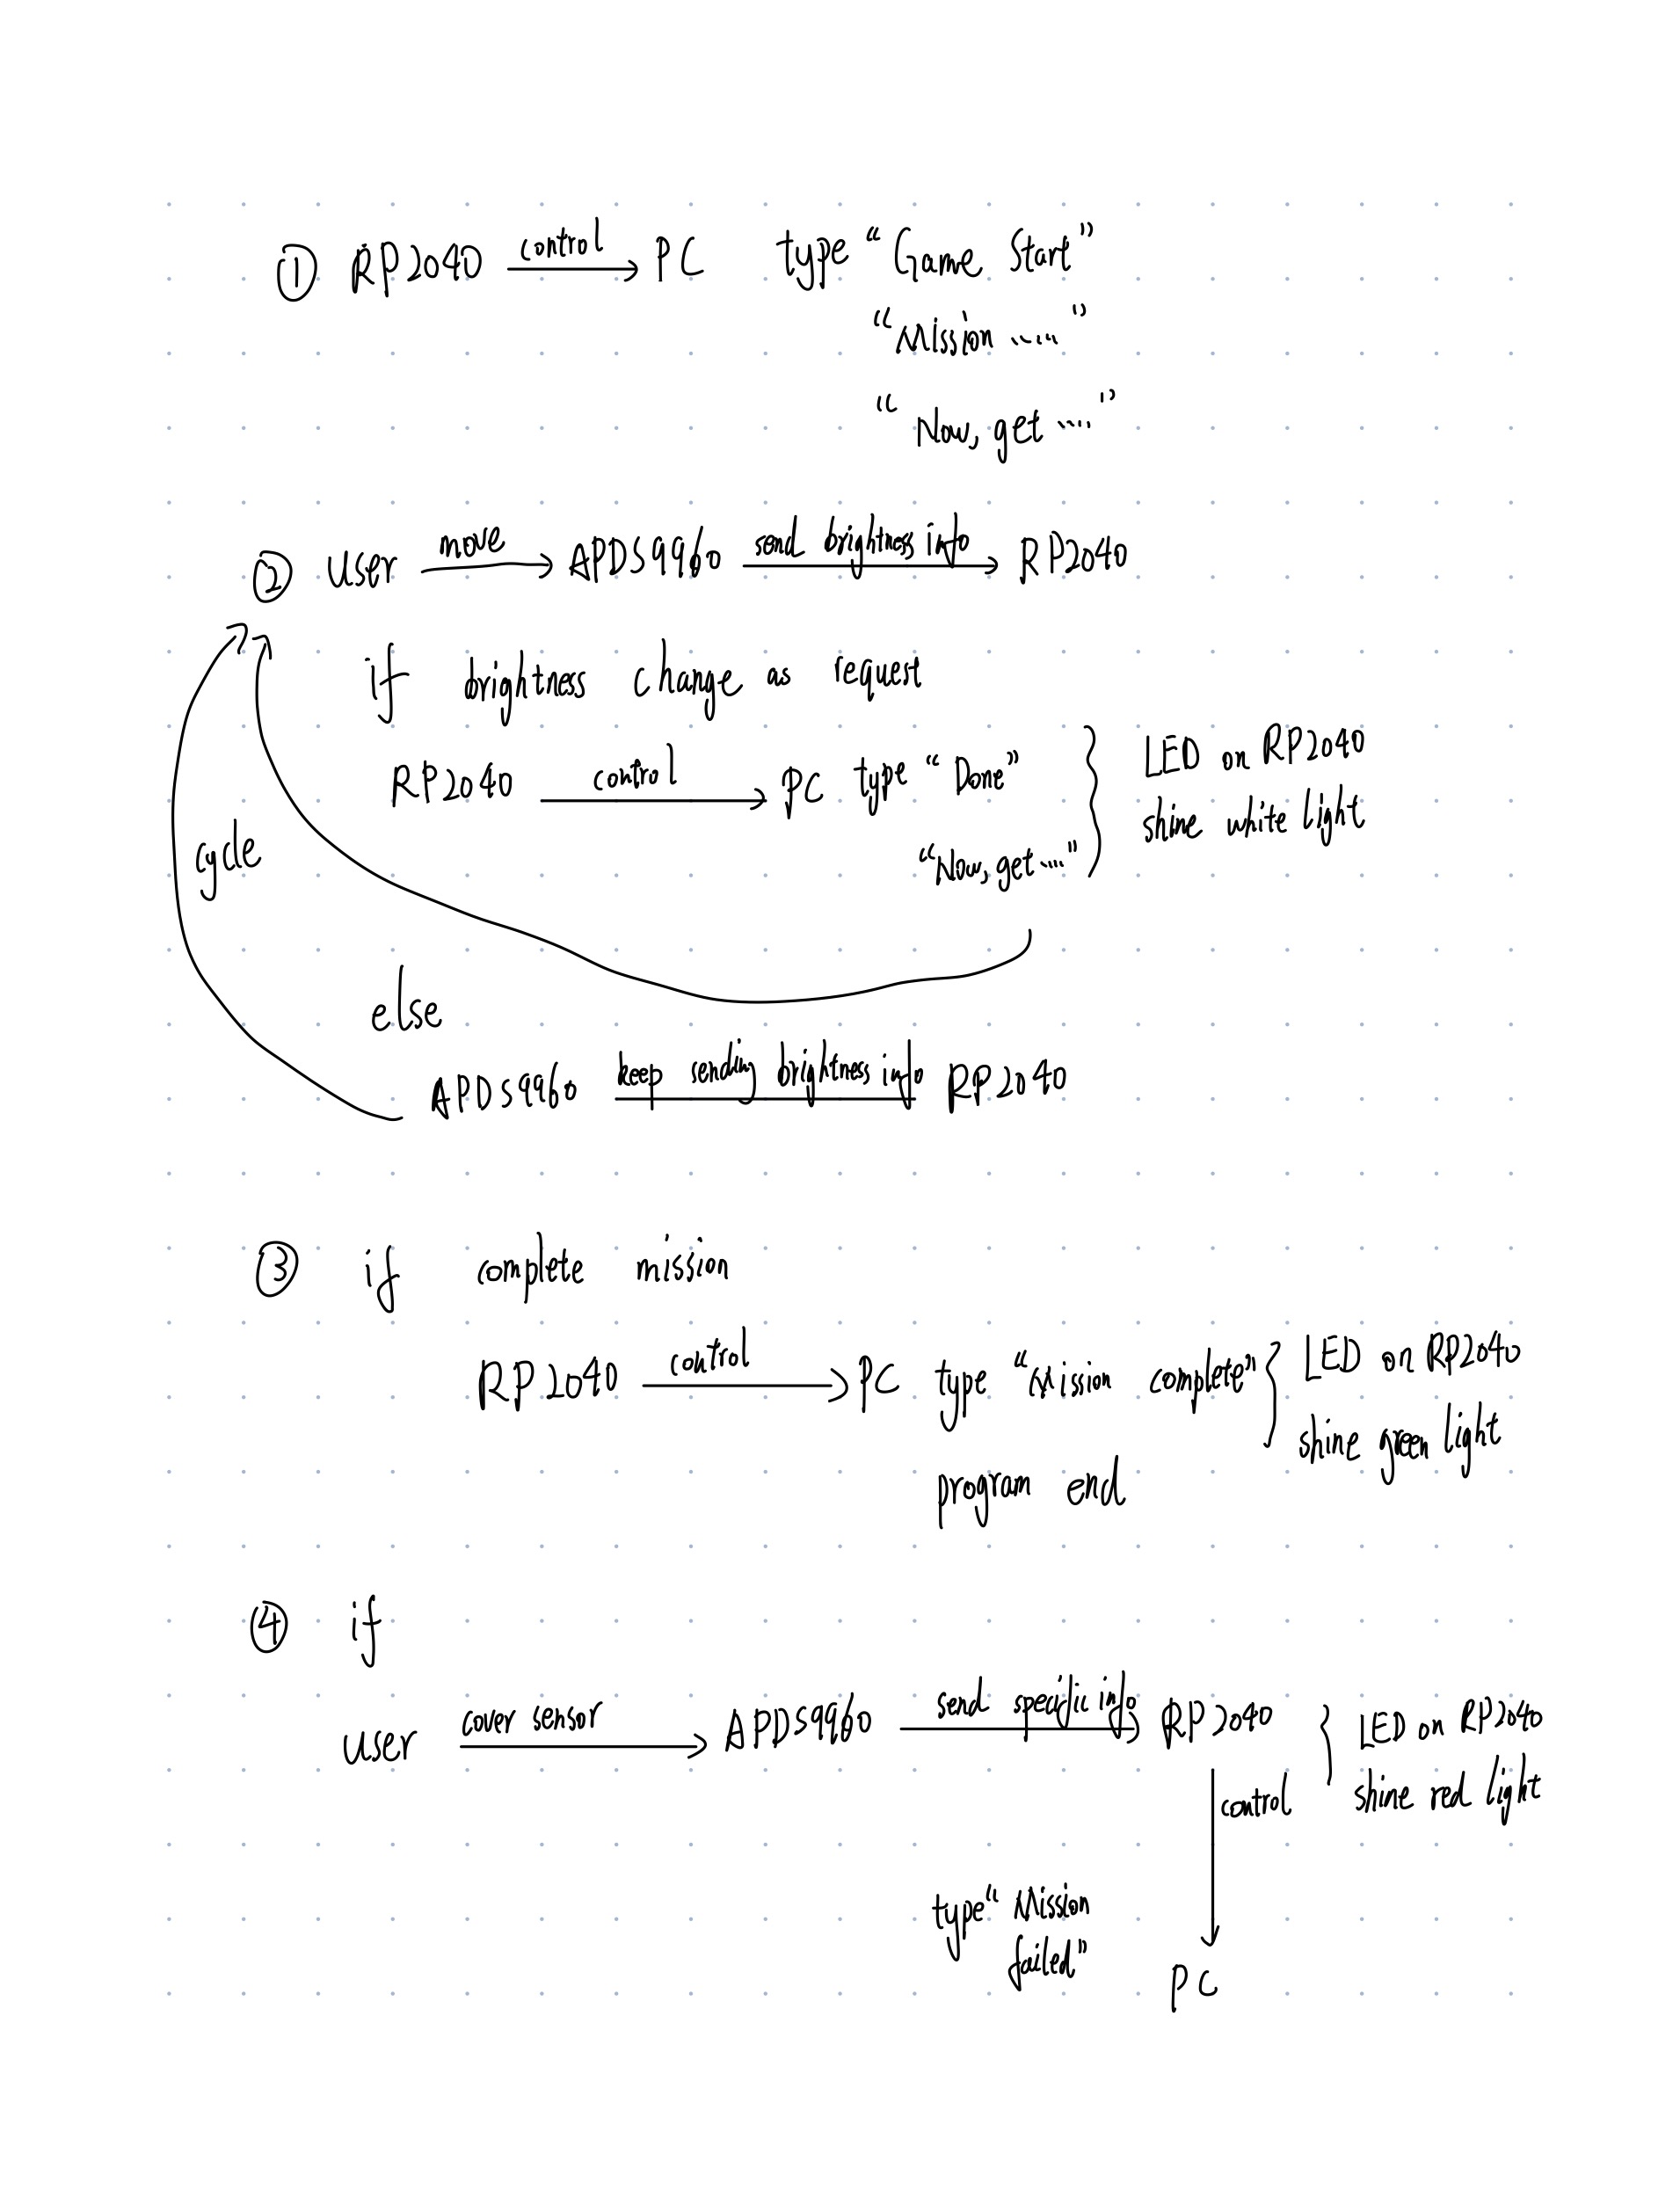 ① RP2040 control PC type "Game Start"
"Mission ....."
"Now, get ....."
② user move APDS9960 send brightness info RP2040
if brightness change as request
RP2040 control PC type "Done"
"Now, get ....."
LED on RP2040
shine white light
cycle
else
APDS9960 keep sending brightness info RP2040
③ if complete mission
RP2040 control PC type "Mission complete"
program end
LED on RP2040
shine green light
④ if
user cover sensor APDS9960 send specific info RP2040
LED on RP2040
shine red light
control
type "Mission
failed"
PC